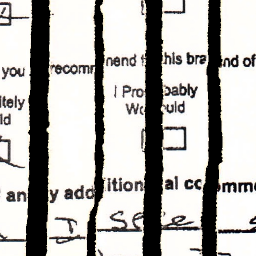 you recommend this brand of
itely I Probably
ld Would
any additional comme
I